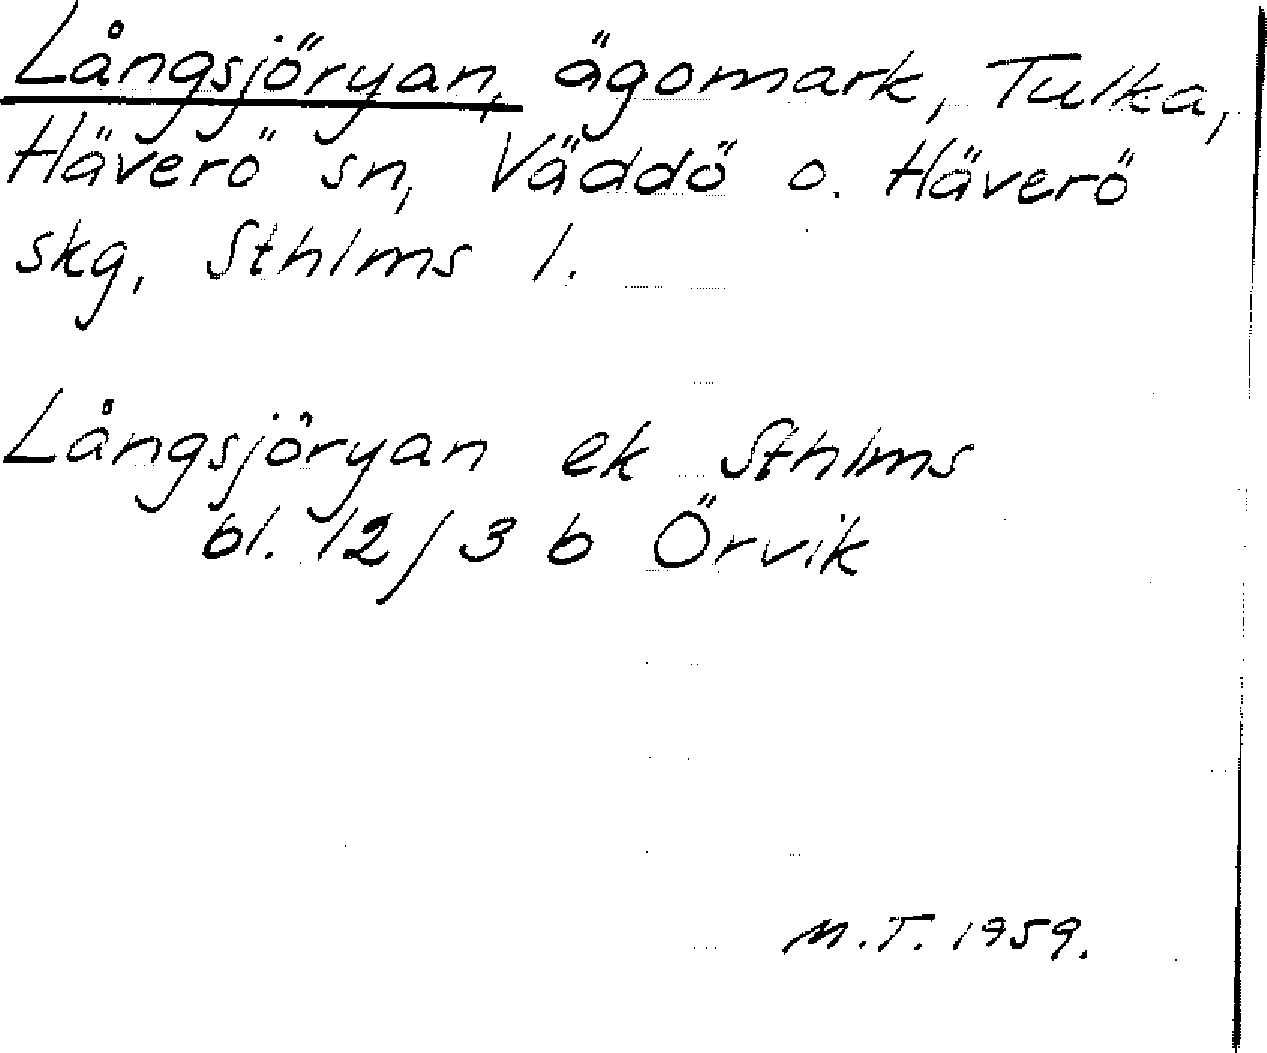 Långsjöryan, ägomark, Tulka,
Häverö sn, Väddö o. Häverö
skg, Sthlms l.
Långsjöryan ek Sthlms
bl. 12/3 b Örvik
M.T. 1959.